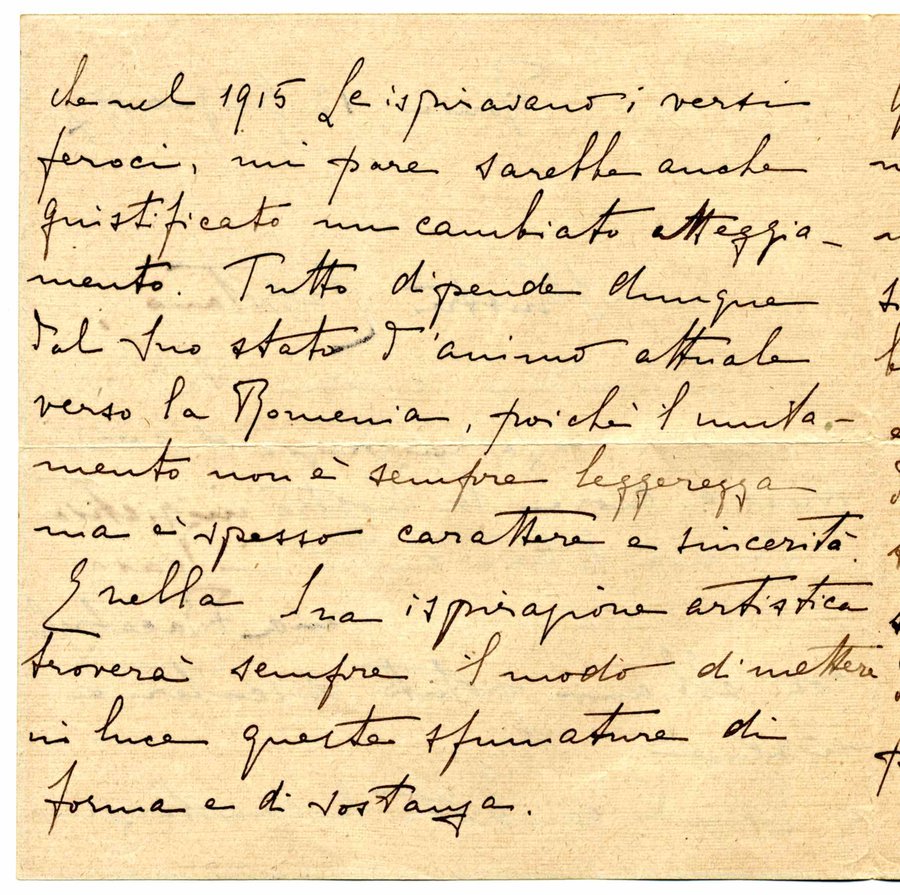 che nel 1915 Le ispiravano i versi
feroci, mi pare sarebbe anche
giustificato un cambiato atteggia-
mento. Tutto dipende dunque
dal Suo stato d'animo attuale
verso la Romenia, poichè il muta-
mento non è sempre leggerezza
ma è spesso carattere e sincerità.
E nella Sua ispirazione artistica
troverà sempre il modo di mettere
in luce queste sfumature di
forma e di sostanza.